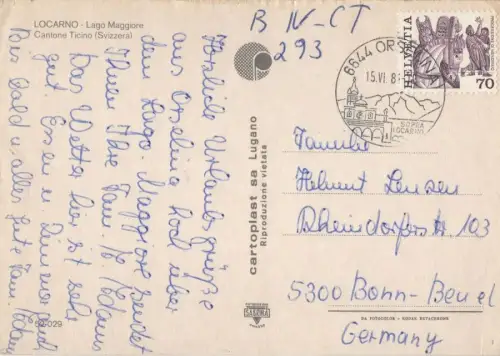 LOCARNO - Lago Maggiore
Cantone Ticino (Svizzera)
B IV-CT
293
Herzliche Urlaubsgrüße
aus Orselina hoch über
dem Lago-Maggiore sendet
Ihnen Ihre Fam.
Das Wetter hier ist sehr
gut. Essen u. Zimmer auch
Bis bald u. alles gute Fam.
50-029
cartoplast sa Lugano
Riproduzione vietata
6644 ORSELINA
15.VI.8
SOPRA
LOCARNO
HELVETIA
70
Familie
Helmut Lensen
Rheindorferstr. 103
5300 Bonn-Beuel
Germany